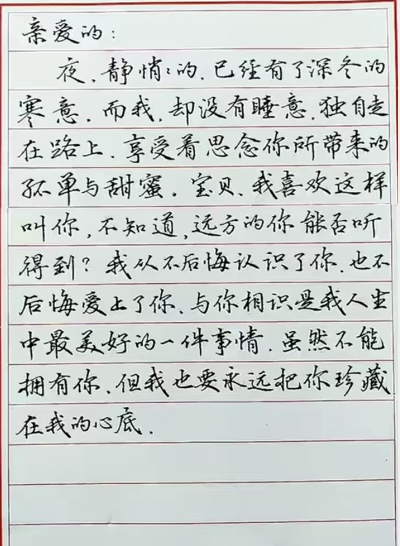 亲爱的：
夜，静悄悄的，已经有了深冬的
寒意，而我，却没有睡意，独自走
在路上，享受着思念你所带来的
孤单与甜蜜。宝贝，我喜欢这样
叫你，不知道，远方的你能否听
得到？我从不后悔认识了你，也不
后悔爱上了你，与你相识是我人生
中最美好的一件事情，虽然不能
拥有你，但我也要永远把你珍藏
在我的心底.